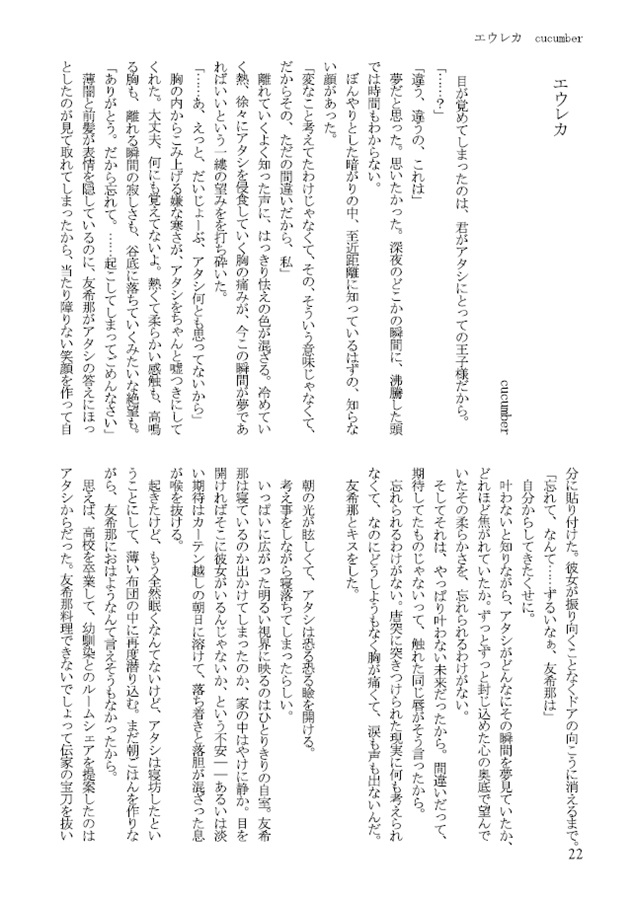 エウレカ　cucumber
エウレカ
cucumber
目が覚めてしまったのは、君がアタシにとっての王子様だから。
「……？」
「違う、違うの、これは」
夢だと思った。思いたかった。深夜のどこかの瞬間に、沸騰した頭
では時間もわからない。
ぼんやりとした暗がりの中、至近距離に知っているはずの、知らな
い顔があった。
「変なこと考えてたわけじゃなくて、その、そういう意味じゃなくて、
だからその、ただの間違いだから、私」
離れていくよく知った声に、はっきり怯えの色が混ざる。冷めてい
く熱、徐々にアタシを侵食していく胸の痛みが、今この瞬間が夢であ
ればいいという一縷の望みをを打ち砕いた。
「……あ、えっと、だいじょーぶ、アタシ何とも思ってないから」
胸の内からこみ上げる嫌な寒さが、アタシをちゃんと嘘つきにして
くれた。大丈夫、何にも覚えてないよ。熱くて柔らかい感触も、高鳴
る胸も、離れる瞬間の寂しさも、谷底に落ちていくみたいな絶望も。
「ありがとう。だから忘れて。……起こしてしまってごめんなさい」
薄闇と前髪が表情を隠しているのに、友希那がアタシの答えにほっ
としたのが見て取れてしまったから、当たり障りない笑顔を作って自
分に貼り付けた。彼女が振り向くことなくドアの向こうに消えるまで。
「忘れて、なんて……ずるいなぁ、友希那は」
自分からしてきたくせに。
叶わないと知りながら、アタシがどんなにその瞬間を夢見ていたか、
どれほど焦がれていたか。ずっとずっと封じ込めた心の奥底で望んで
いたその柔らかさを、忘れられるわけがない。
そしてそれは、やっぱり叶わない未来だったから。間違いだって、
期待してたものじゃないって、触れた同じ唇がそう言ったから。
忘れられるわけがない。唐突に突きつけられた現実に何も考えられ
なくて、なのにどうしようもなく胸が痛くて、涙も声も出ないんだ。
友希那とキスをした。
朝の光が眩しくて、アタシは恐る恐る瞼を開ける。
考え事をしながら寝落ちてしまったらしい。
いっぱいに広がった明るい視界に映るのはひとりきりの自室。友希
那は寝ているのか出かけてしまったのか、家の中はやけに静か。目を
開ければそこに彼女がいるんじゃないか、という不安――あるいは淡
い期待はカーテン越しの朝日に溶けて、落ち着きと落胆が混ざった息
が喉を抜ける。
起きたけど、もう全然眠くなんてないけど、アタシは寝坊したとい
うことにして、薄い布団の中に再度潜り込む。まだ朝ごはんを作りな
がら、友希那におはようなんて言えそうもなかったから。
思えば、高校を卒業して、幼馴染とのルームシェアを提案したのは
アタシからだった。友希那料理できないでしょって伝家の宝刀を抜い
22